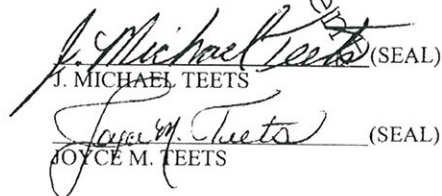 J. Michael Teets (SEAL)
J. MICHAEL TEETS
Joyce M. Teets (SEAL)
JOYCE M. TEETS